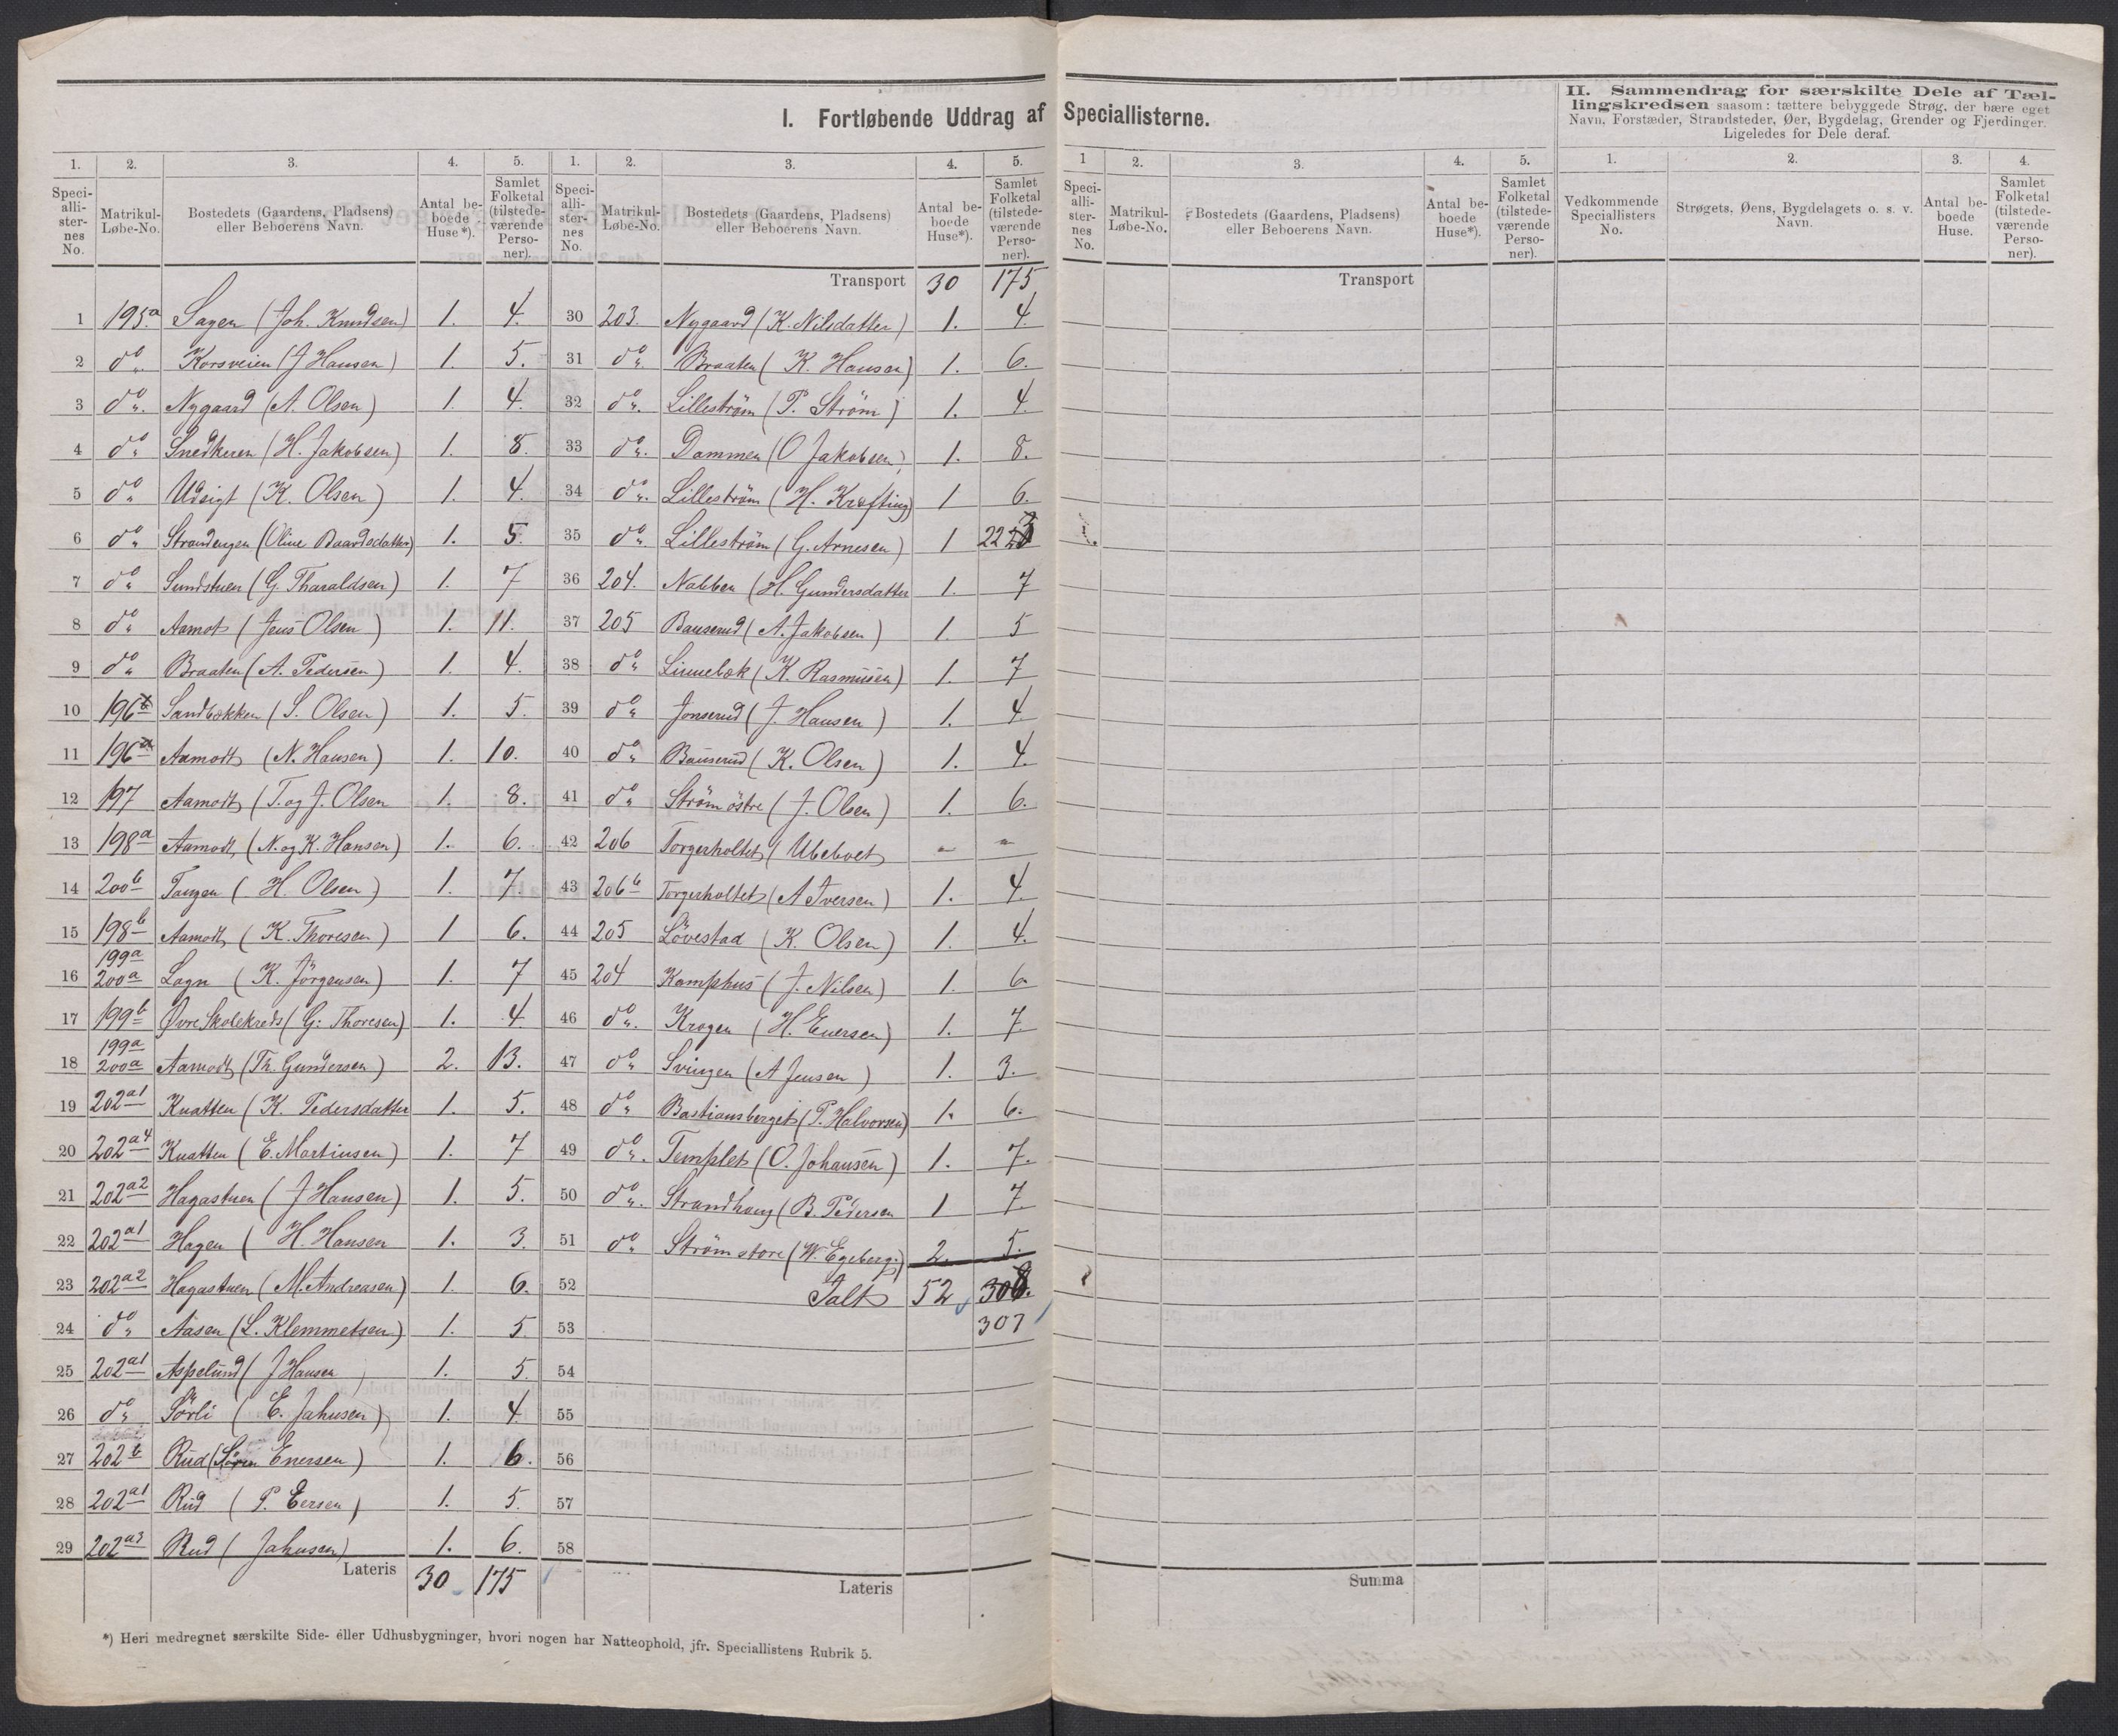 I. Fortløbende Uddrag af Speciallisterne.
II. Sammendrag for særskilte Dele af Tæl-
lingskredsen saasom: tættere bebyggede Strøg, der bære eget
Navn, Forstæder, Strandsteder, Øer, Bygdelag, Grender og Fjerdinger.
Ligeledes for Dele deraf.
1. 2. 3. 4. 5.
Speci-alli-ster-nes No. Matrikul-Løbe-No. Bostedets (Gaardens, Pladsens) eller Beboerens Navn. Antal be-boede Huse*). Samlet Folketal (tilstede-værende Perso-ner).
1 195.a Sagen (Joh. Knudsen) 1. 4.
2 do Korsveien (J Hansen) 1. 5.
3 do Nygaard (A. Olsen) 1 4.
4 do Snedkeren (H. Jakobsen) 1. 8.
5 do Udsigt (K. Olsen) 1. 4.
6 do Strandengen (Oline Baardsdatter) 1. 5.
7 do Sundstuen (G. Tharaldsen) 1. 7
8 do Aamot (Jens Olsen) 1. 11.
9 do Braaten (A. Pedersen) 1. 4.
10 196 Sandbækken (S. Olsen) 1. 5.
11 196a Aamodt (N. Hansen) 1. 10.
12 197 Aamodt (T. og J. Olsen 1. 8.
13 198a Aamodt (N. og K. Hansen) 1. 6.
14 200b Tangen (H. Olsen) 1. 7.
15 198b Aamodt (K. Thoresen) 1 6.
16 199a 200a Lagn (K. Jörgensen) 1. 7
17 199b Øvre Skolekreds (G: Thoresen) 1. 4
18 199a 200a Aamodt (Th. Gundersen) 2. 13.
19 202a1 Knatten (K. Pedersdatter 1. 5.
20 202a4 Knatten (E. Martinsen) 1. 7
21 202a2 Hagastuen (J Hansen) 1. 5.
22 202a1 Hagen (H. Hansen 1. 3.
23 202a2 Hagastuen (M. Andreasen) 1. 6.
24 do Aasen (L. Klemmetsen) 1. 5
25 202a1 Aspelund (J Hansen) 1. 5.
26 do Sörli (E. Jahnsen) 1. 4.
27 202b Rud (Enersen) 1. 6.
28 202a1 Rud (P. Eersen) 1. 5.
29 202a3 Rud (Jahnsen) 1. 6.
Lateris 30 175
1. 2. 3. 4. 5.
Speci-alli-ster-nes No. Matrikul-Løbe-No. Bostedets (Gaardens, Pladsens) eller Beboerens Navn. Antal be-boede Huse*). Samlet Folketal (tilstede-værende Perso-ner).
Transport 30 175
30 203. Nygaard (K. Nilsdatter) 1. 4.
31 do Braaten (K. Hansen) 1. 6.
32 do Lilleström (P. Ström) 1. 4.
33 do Dammen (O Jakobsen) 1. 8.
34 do Lilleström (H. Kræfting) 1 6.
35 do Lilleström (G. Arnesen) 1
36 204. Nabben (H. Gundersdatter 1. 7
37 205 Bauserud (A. Jakobsen) 1. 5
38 do Linnebæk (K. Rasmussen) 1. 7
39 do Jonserud (J. Hansen) 1. 4
40 do Bauserud (K. Olsen) 1. 4.
41 do Ström östre (J. Olsen) 1. 6.
42 206 Torgerholtet (Ubeboet - -
43 206b Torgerholtet (A Iversen) 1. 4.
44 205 Lövestad (K. Olsen) 1. 4.
45 204 Kamphus (J. Nilsen) 1. 6
46 do Krogen (H. Enersen) 1. 7
47 do Svingen (A Jensen) 1. 3.
48 do Bastiansberget (P. Halvorsen) 1. 6.
49 do Templet (O. Johansen) 1. 7.
50 do Strandhaug (B. Pedersen 1 7.
51 do Ström store (W. Egeberg) 2. 5.
52 Ialt 52 308.
53 307
54
55
56
57
58
Lateris
1 2. 3. 4. 5.
Speci-alli-ster-nes No. Matrikul-Løbe-No. Bostedets (Gaardens, Pladsens) eller Beboerens Navn. Antal be-boede Huse*). Samlet Folketal (tilstede-værende Perso-ner).
Transport
Summa
1. 2. 3. 4.
Vedkommende Speciallisters No. Strøgets, Øens, Bygdelagets o. s. v. Navn. Antal be-boede Huse. Samlet Folketal (tilstede-værende Perso-ner).
*) Heri medregnet særskilte Side- eller Udhusbygninger, hvori nogen har Natteophold, jfr. Speciallistens Rubrik 5.